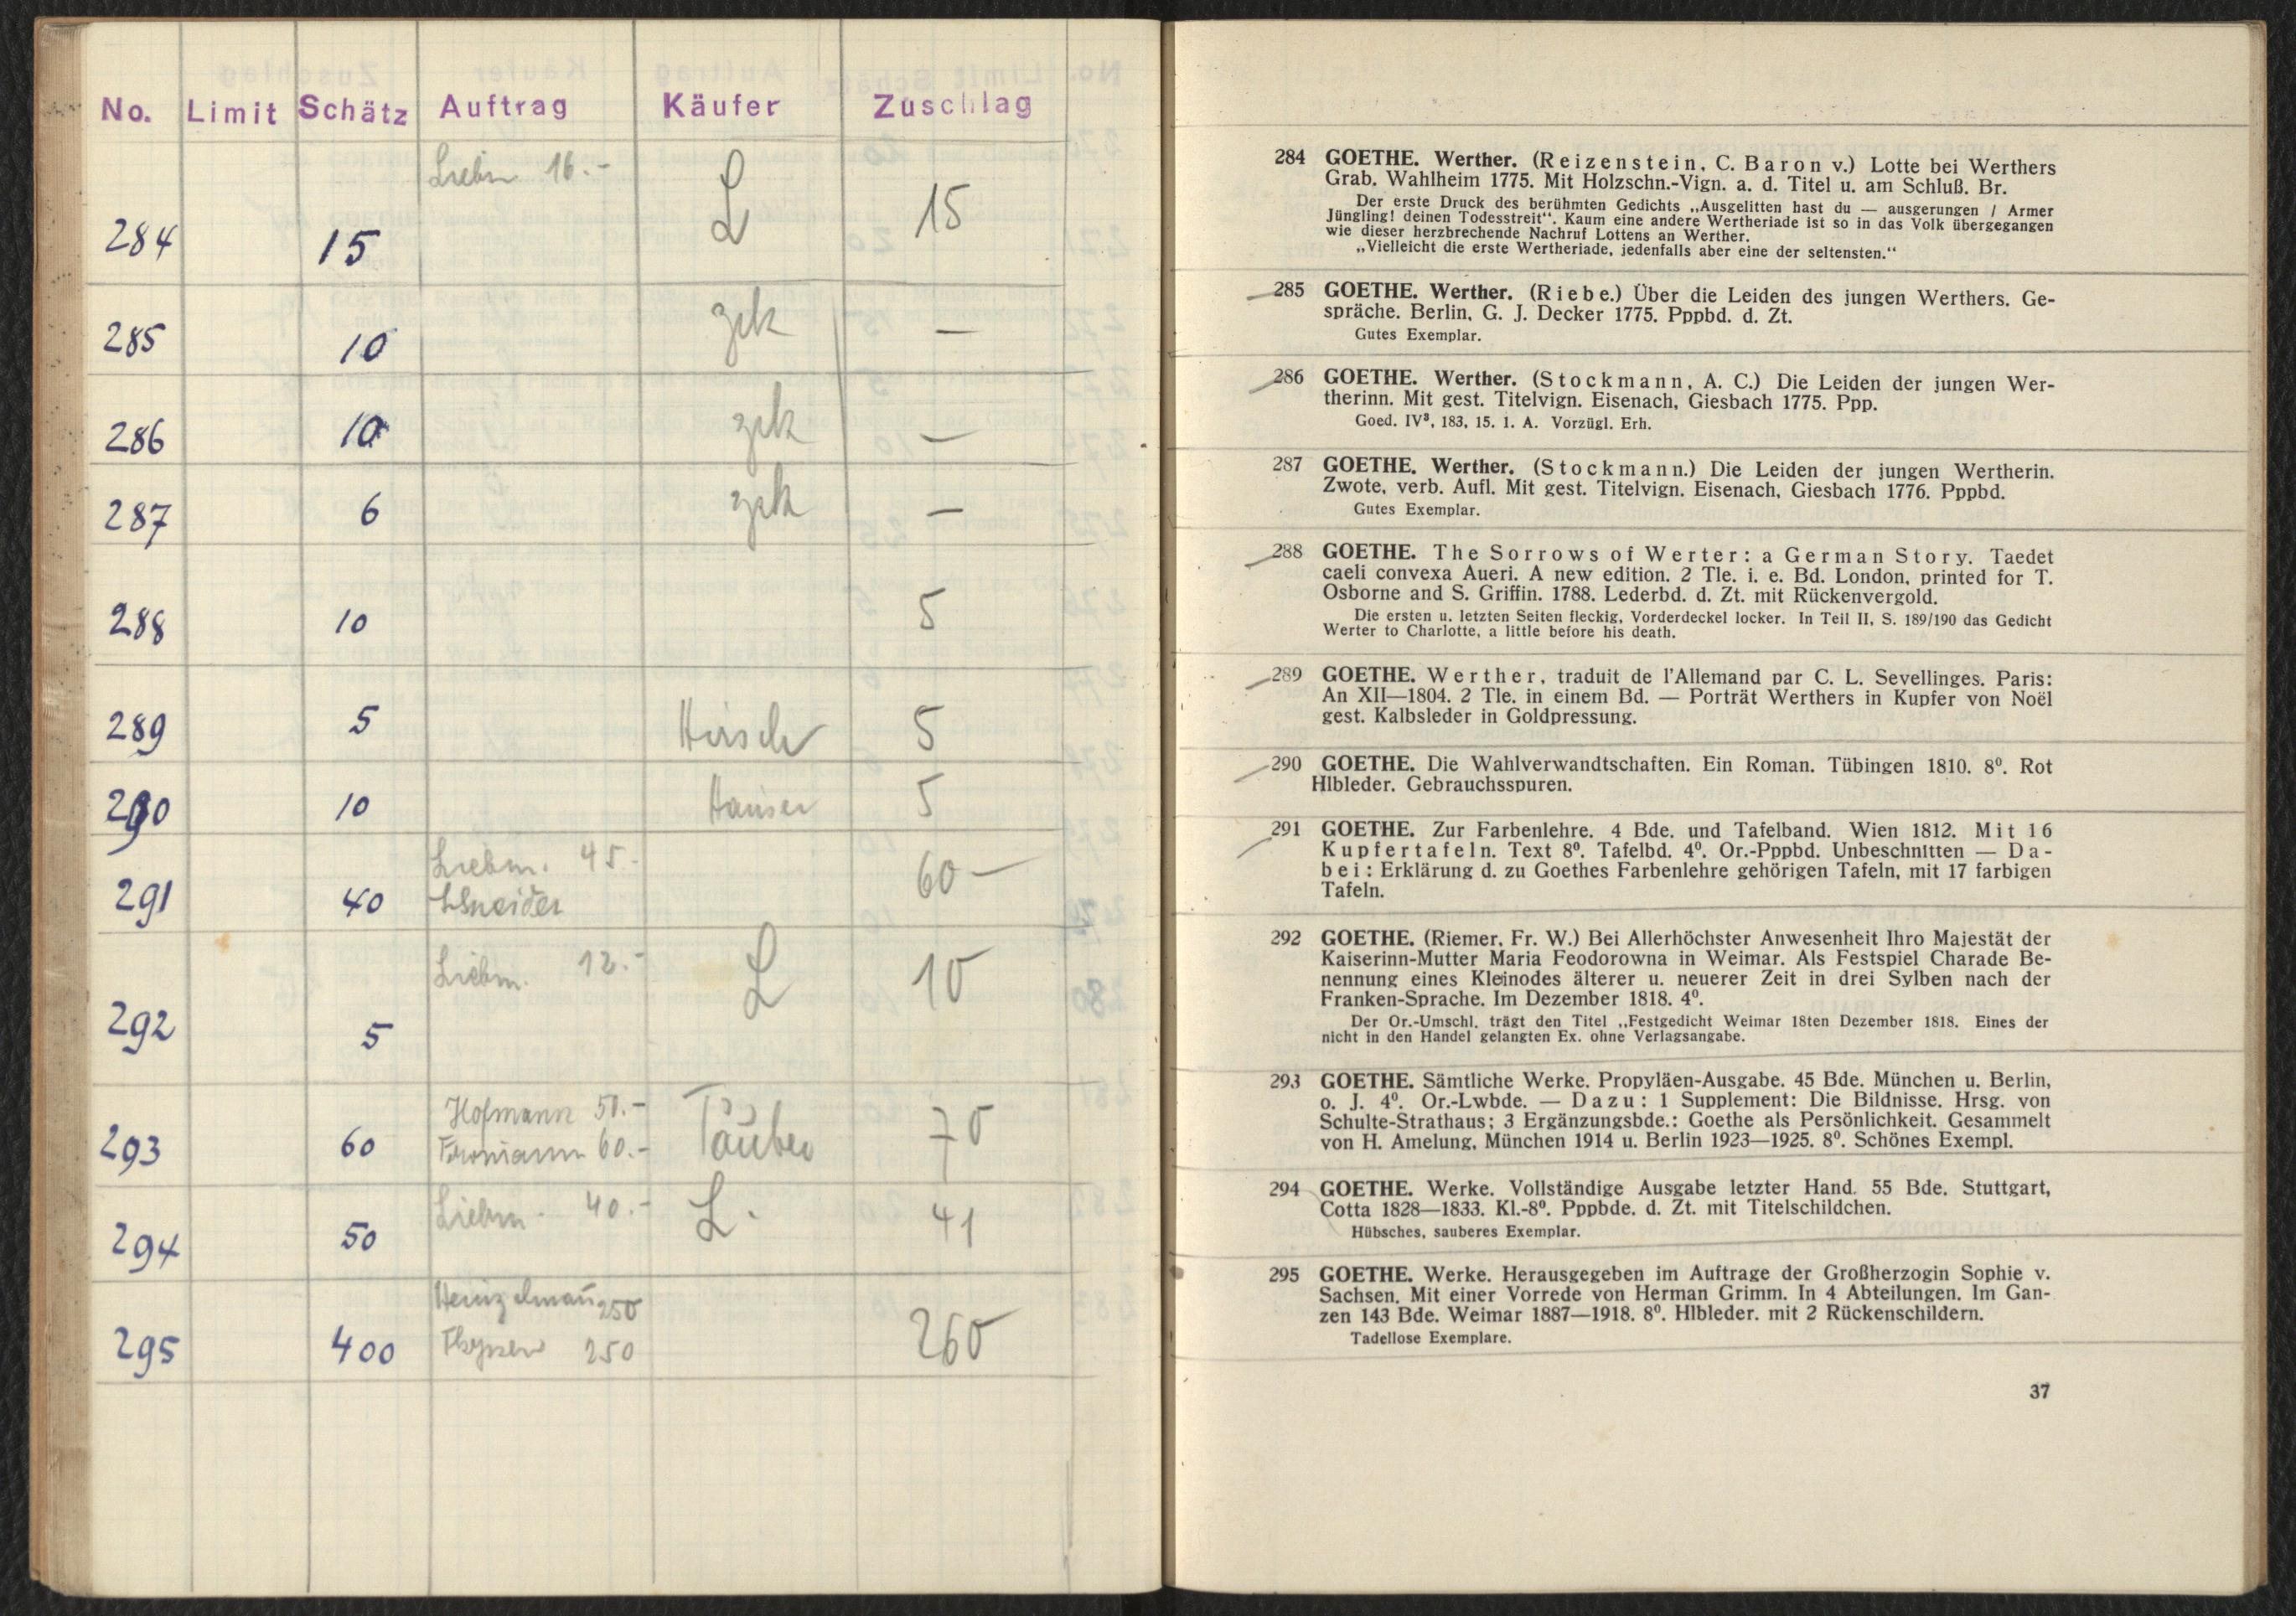 No. Limit Schätz Auftrag Käufer Zuschlag
Liebm 16.-
284 15 L 15
285 10 zck —
286 10 zck —
287 6 zck —
288 10 5
289 5 Hirsch 5
290 10 Hauser 5
Liebm. 45.-
291 40 60 —
Liebm. 12.-
292 5 L 10
Hofmann 50.-
293 60 60.- Täuber 70
294 50 Liebm. 40.- L. 41
250
295 400 Thyssen 250 260
284 GOETHE. Werther. (Reizenstein, C. Baron v.) Lotte bei Werthers
Grab. Wahlheim 1775. Mit Holzschn.-Vign. a. d. Titel u. am Schluß. Br.
Der erste Druck des berühmten Gedichts „Ausgelitten hast du — ausgerungen / Armer
Jüngling! deinen Todesstreit“. Kaum eine andere Wertheriade ist so in das Volk übergegangen
wie dieser herzbrechende Nachruf Lottens an Werther.
„Vielleicht die erste Wertheriade, jedenfalls aber eine der seltensten.“
285 GOETHE. Werther. (Riebe.) Über die Leiden des jungen Werthers. Ge-
spräche. Berlin, G. J. Decker 1775. Pppbd. d. Zt.
Gutes Exemplar.
286 GOETHE. Werther. (Stockmann, A. C.) Die Leiden der jungen Wer-
therinn. Mit gest. Titelvign. Eisenach, Giesbach 1775. Ppp.
Goed. IV³, 183, 15. 1. A. Vorzügl. Erh.
287 GOETHE. Werther. (Stockmann.) Die Leiden der jungen Wertherin.
Zwote, verb. Aufl. Mit gest. Titelvign. Eisenach, Giesbach 1776. Pppbd.
Gutes Exemplar.
288 GOETHE. The Sorrows of Werter: a German Story. Taedet
caeli convexa Aueri. A new edition. 2 Tle. i. e. Bd. London, printed for T.
Osborne and S. Griffin. 1788. Lederbd. d. Zt. mit Rückenvergold.
Die ersten u. letzten Seiten fleckig, Vorderdeckel locker. In Teil II, S. 189/190 das Gedicht
Werter to Charlotte, a little before his death.
289 GOETHE. Werther, traduit de l'Allemand par C. L. Sevellinges. Paris:
An XII—1804. 2 Tle. in einem Bd. — Porträt Werthers in Kupfer von Noël
gest. Kalbsleder in Goldpressung.
290 GOETHE. Die Wahlverwandtschaften. Ein Roman. Tübingen 1810. 8⁰. Rot
Hlbleder. Gebrauchsspuren.
291 GOETHE. Zur Farbenlehre. 4 Bde. und Tafelband. Wien 1812. Mit 16
Kupfertafeln. Text 8⁰. Tafelbd. 4⁰. Or.-Pppbd. Unbeschnitten — Da-
bei: Erklärung d. zu Goethes Farbenlehre gehörigen Tafeln, mit 17 farbigen
Tafeln.
292 GOETHE. (Riemer, Fr. W.) Bei Allerhöchster Anwesenheit Ihro Majestät der
Kaiserinn-Mutter Maria Feodorowna in Weimar. Als Festspiel Charade Be-
nennung eines Kleinodes älterer u. neuerer Zeit in drei Sylben nach der
Franken-Sprache. Im Dezember 1818. 4⁰.
Der Or.-Umschl. trägt den Titel „Festgedicht Weimar 18ten Dezember 1818. Eines der
nicht in den Handel gelangten Ex. ohne Verlagsangabe.
293 GOETHE. Sämtliche Werke. Propyläen-Ausgabe. 45 Bde. München u. Berlin,
o. J. 4⁰. Or.-Lwbde. — Dazu: 1 Supplement: Die Bildnisse. Hrsg. von
Schulte-Strathaus; 3 Ergänzungsbde.: Goethe als Persönlichkeit. Gesammelt
von H. Amelung, München 1914 u. Berlin 1923—1925. 8⁰. Schönes Exempl.
294 GOETHE. Werke. Vollständige Ausgabe letzter Hand. 55 Bde. Stuttgart,
Cotta 1828—1833. Kl.-8⁰. Pppbde. d. Zt. mit Titelschildchen.
Hübsches, sauberes Exemplar.
295 GOETHE. Werke. Herausgegeben im Auftrage der Großherzogin Sophie v.
Sachsen. Mit einer Vorrede von Herman Grimm. In 4 Abteilungen. Im Gan-
zen 143 Bde. Weimar 1887—1918. 8⁰. Hlbleder. mit 2 Rückenschildern.
Tadellose Exemplare.
37